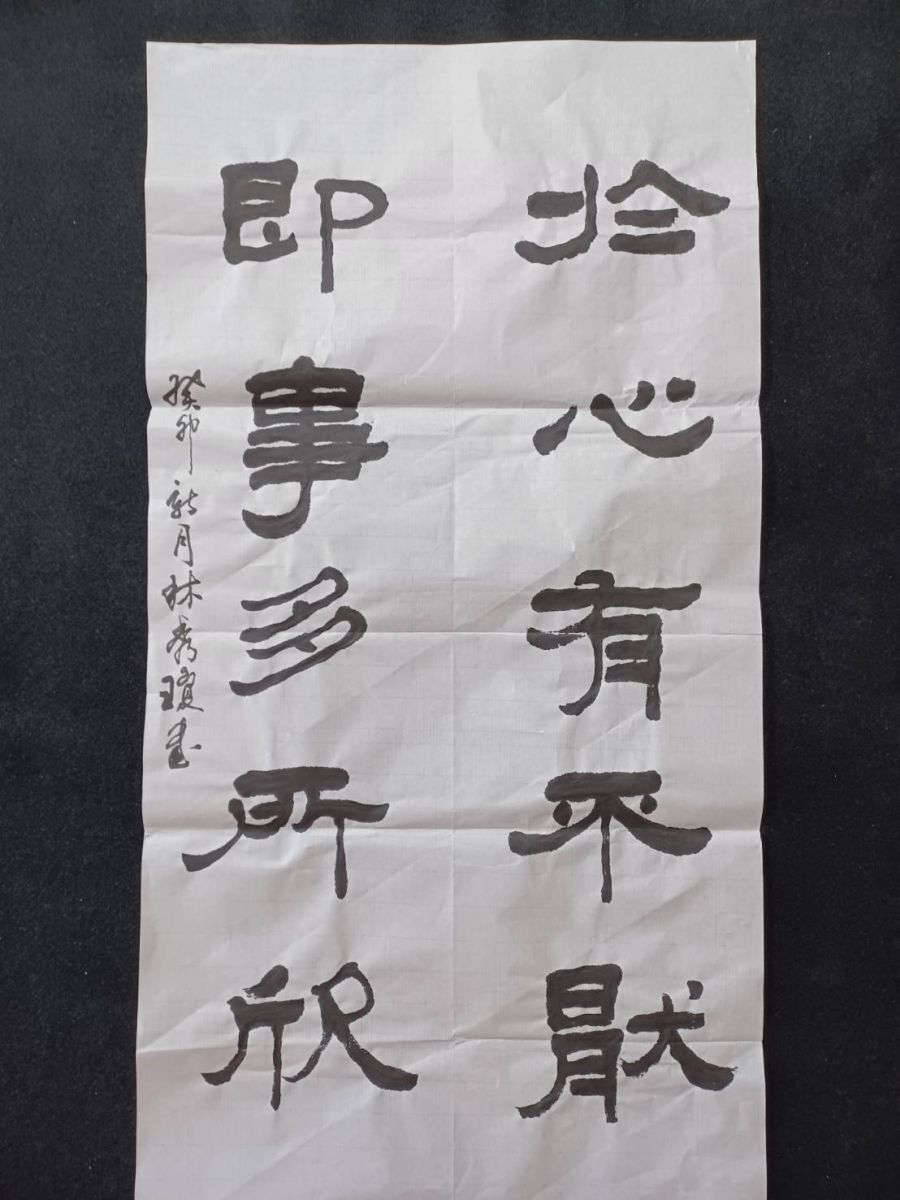 於心有不猒
即事多所欣
癸卯新月林秀瓊書